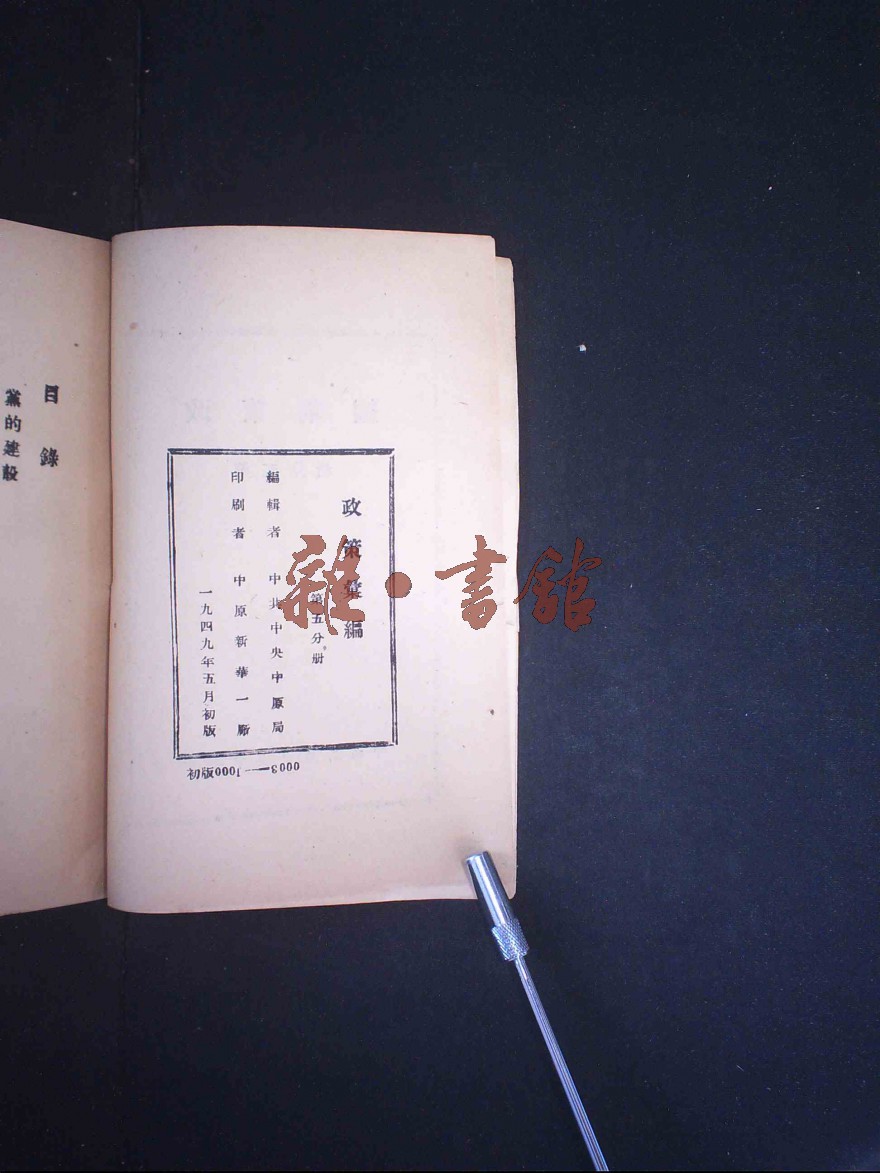 政策彙編
第五分册
編輯者 中共中央中原局
印刷者 中原新華一廠
一九四九年五月初版
初版0001—3000
目錄
黨的建設
雜·書館